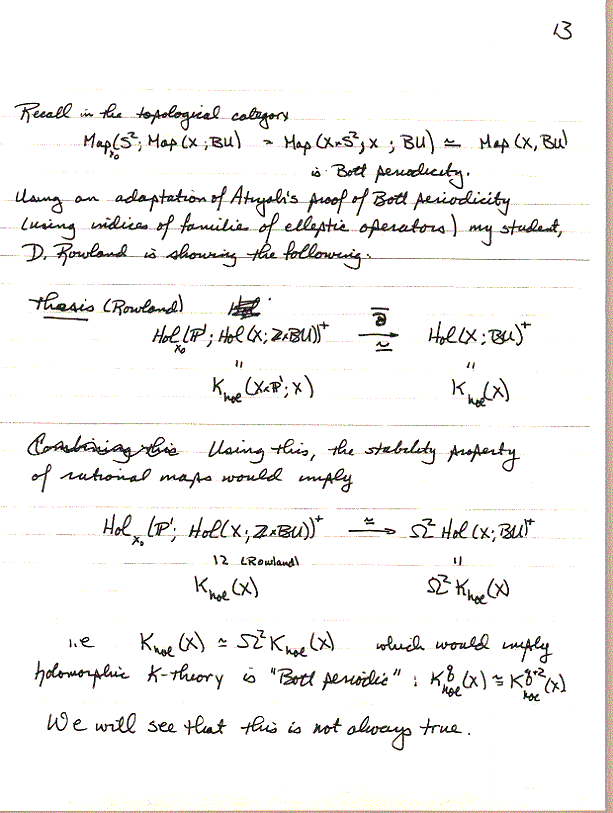 13
Recall in the topological category
Map_{x_0}(S^2; Map(X; BU)) = Map(X×S^2, X; BU) ≃ Map(X, BU)
is Bott periodicity.
Using an adaptation of Atiyah's proof of Bott periodicity
(using indices of families of elliptic operators) my student,
D. Rowland is showing the following.
Thesis (Rowland)
Hol_{x_0}(P^1; Hol(X; Z×BU))^+ \xrightarrow[≃]{\overline{∂}} Hol(X; BU)^+
= =
K_{hol}(X×P^1; X) K_{hol}(X)
Using this, the stability property
of rational maps would imply
Hol_{x_0}(P^1; Hol(X; Z×BU))^+ \xrightarrow{≃} Ω^2 Hol(X; BU)^+
≃ (Rowland) =
K_{hol}(X) Ω^2 K_{hol}(X)
i.e K_{hol}(X) ≃ Ω^2 K_{hol}(X) which would imply
holomorphic K-theory is "Bott periodic" : K^q_{hol}(X) ≅ K^{q+2}_{hol}(X)
We will see that this is not always true.